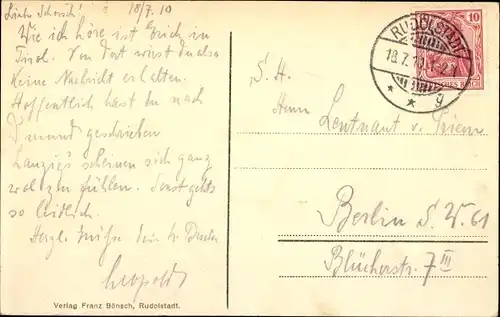 18/7.10
Wie ich höre ist Erich in
Tirol. Von dort wirst du also
keine Nachricht erhalten.
Hoffentlich hast du nach
geschrieben
scheinen sich ganz
wohl zu fühlen. Sonst gehts
so leidlich.
Herzl. Grüße dein tr.
Leopold
Verlag Franz Bönsch, Rudolstadt.
RUDOLSTADT
18.7.10.1-2
* * g
10
S. H.
Herrn Leutnant v.
Berlin S. W. 61
Blücherstr. 7 III